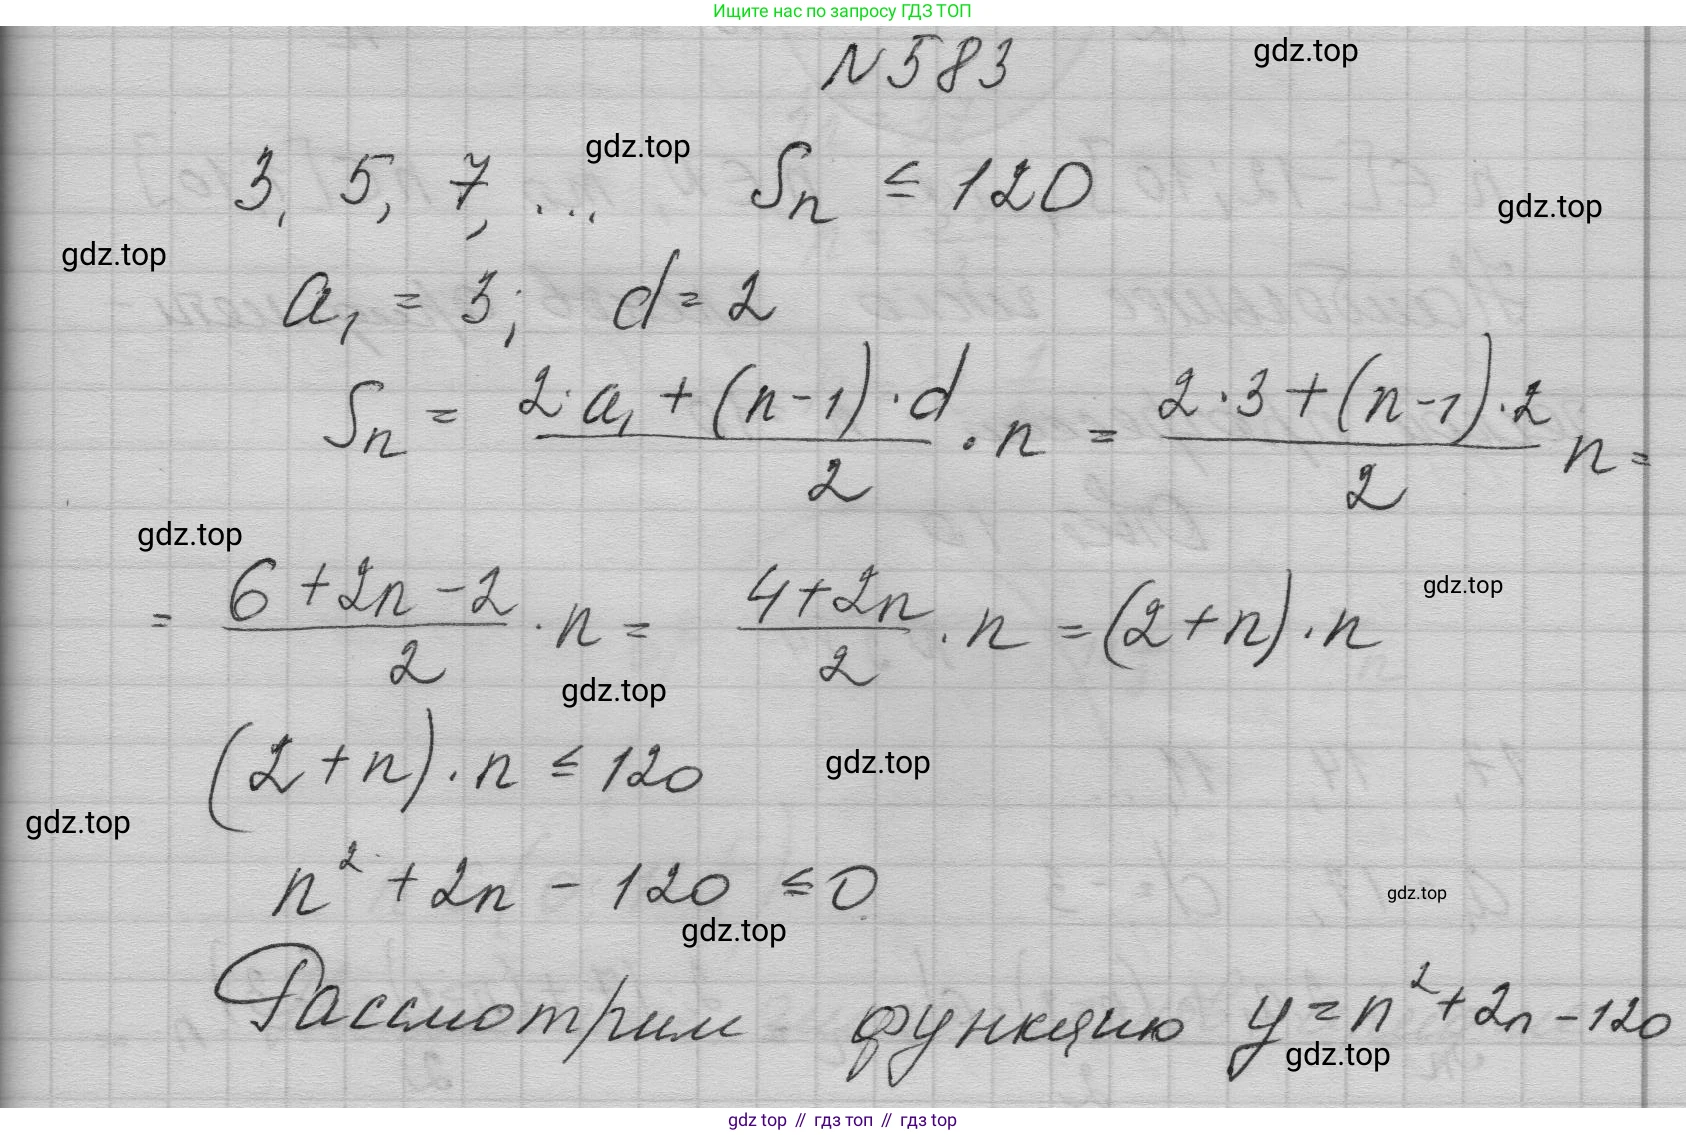 Ищите нас по запросу ГДЗ ТОП
N 583
gdz.top
gdz.top
3, 5, 7, ... Sn ≤ 120
gdz.top
gdz.top
a₁ = 3; d = 2
Sn = (2·a₁ + (n-1)·d)/2 · n = (2·3 + (n-1)·2)/2 n =
gdz.top
gdz.top
= (6 + 2n - 2)/2 · n = (4 + 2n)/2 · n = (2 + n) · n
gdz.top
(2 + n) · n ≤ 120
gdz.top
gdz.top
n² + 2n - 120 ≤ 0
gdz.top
gdz.top
Рассмотрим функцию y = n² + 2n - 120
gdz.top
gdz.top // гдз топ // гдз top